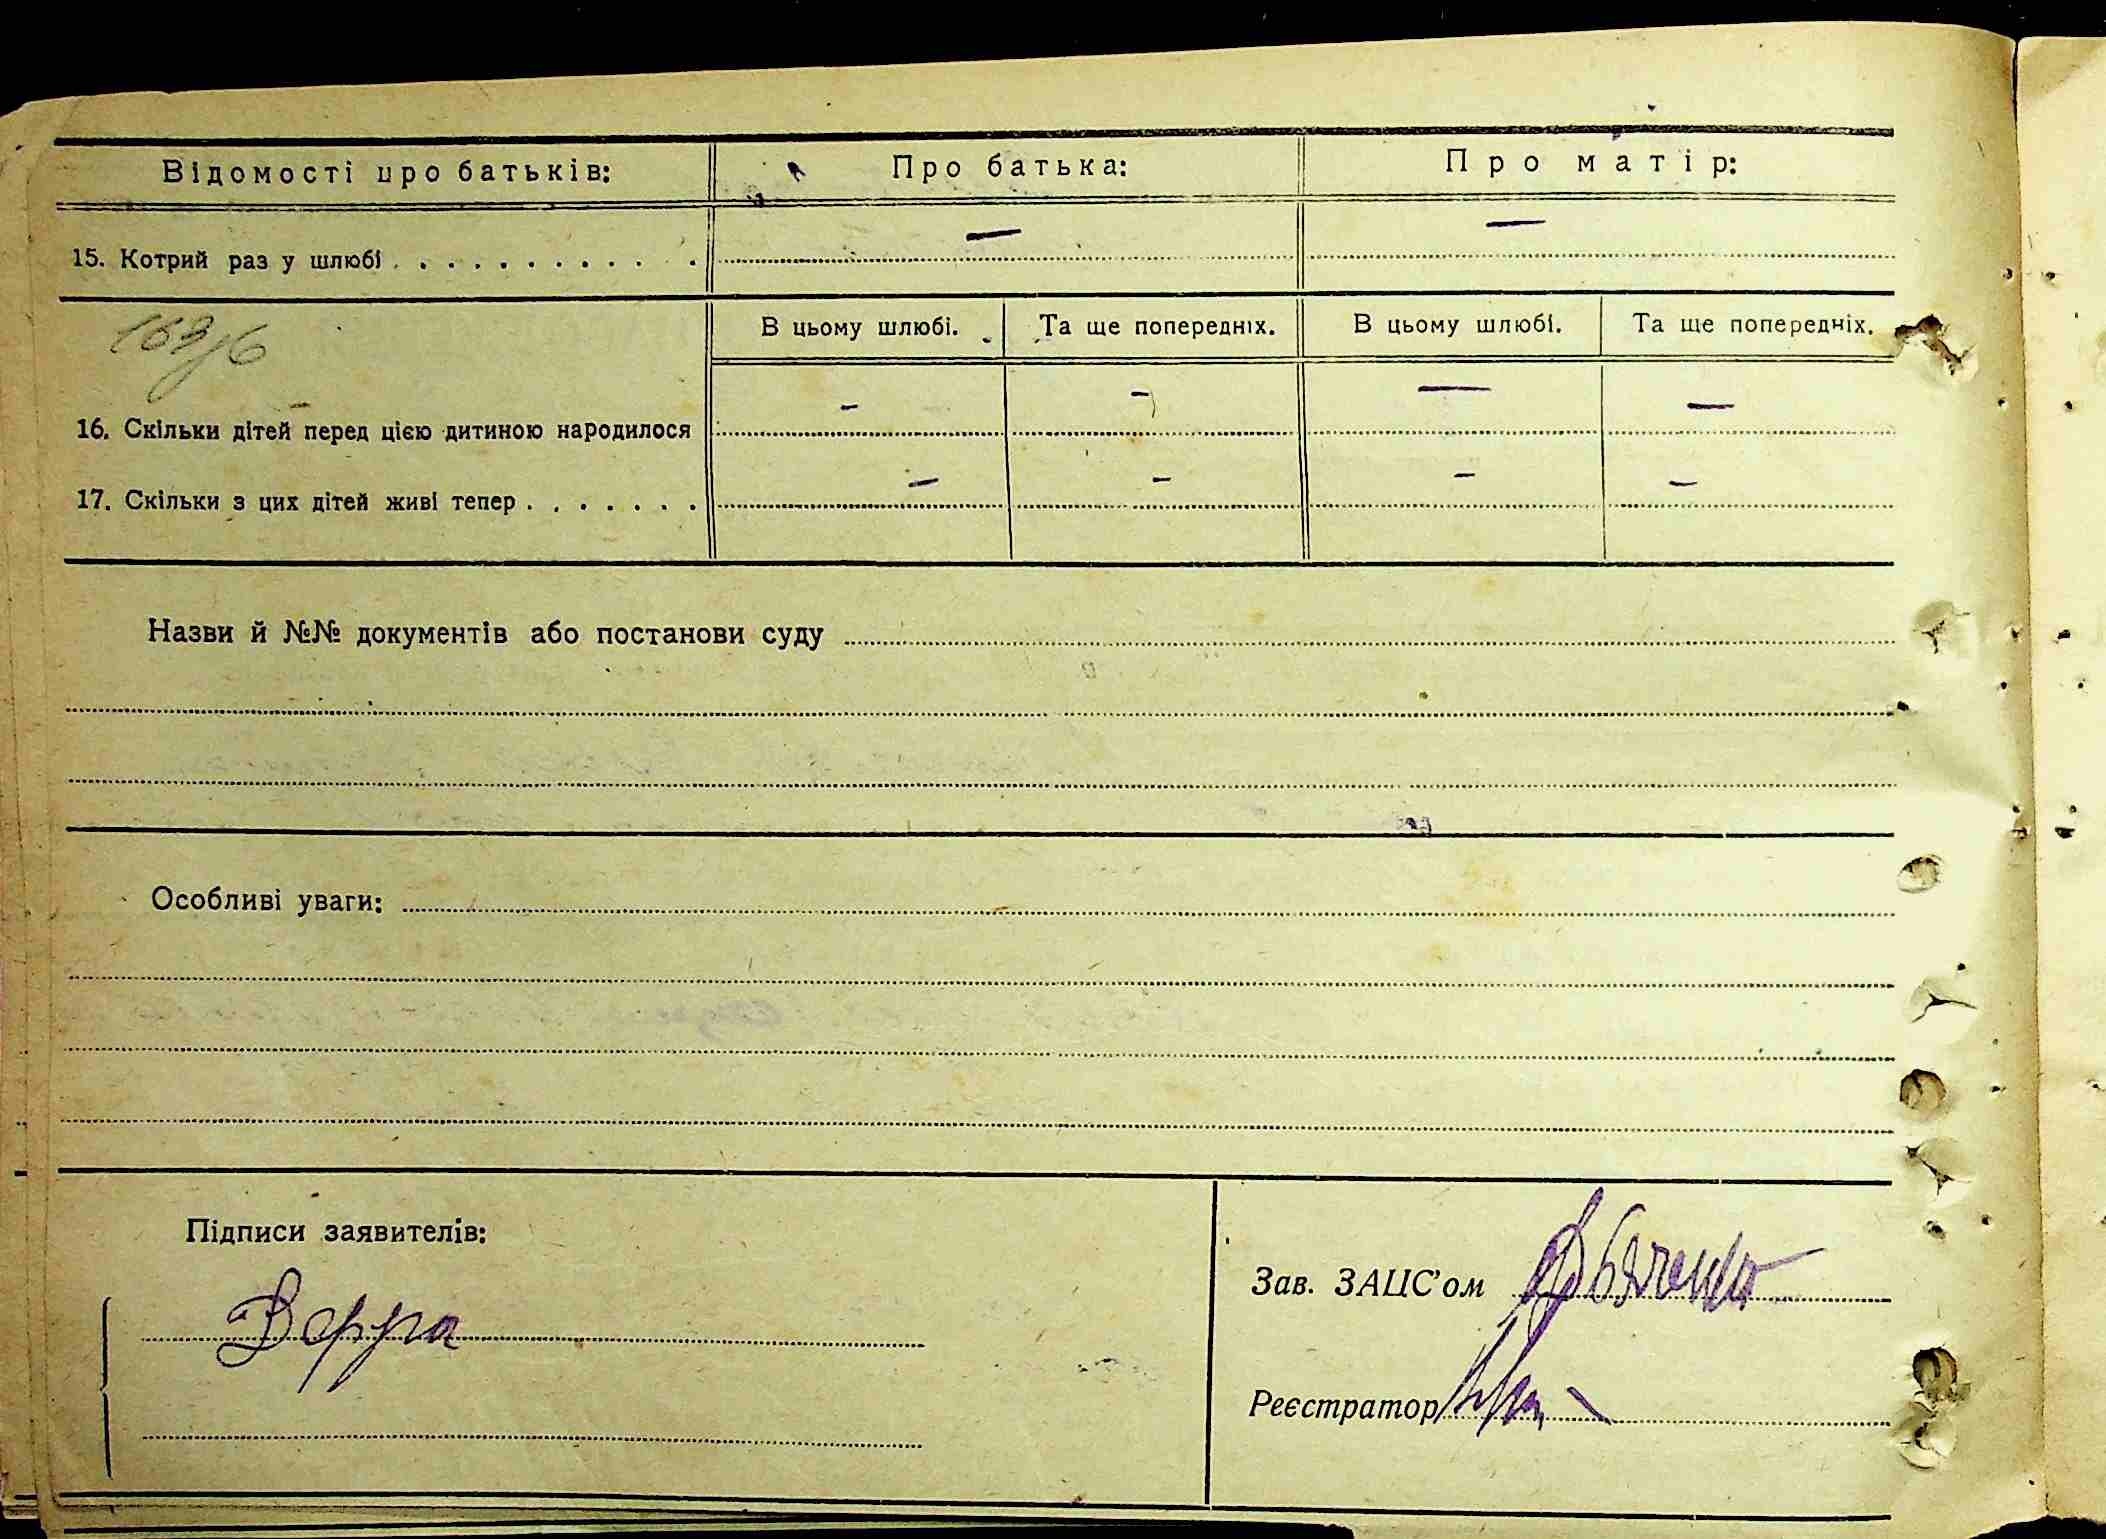 Відомості про батьків: Про батька: Про матір:
15. Котрий раз у шлюбі . . . . . . . . . . . . — —
В цьому шлюбі. Та ще попередніх. В цьому шлюбі. Та ще попередніх.
16. Скільки дітей перед цією дитиною народилося — — — —
17. Скільки з цих дітей живі тепер . . . . . . . — — — —
Назви й №№ документів або постанови суду
Особливі уваги:
Підписи заявителів:
Зав. ЗАЦС'ом
Реєстратор